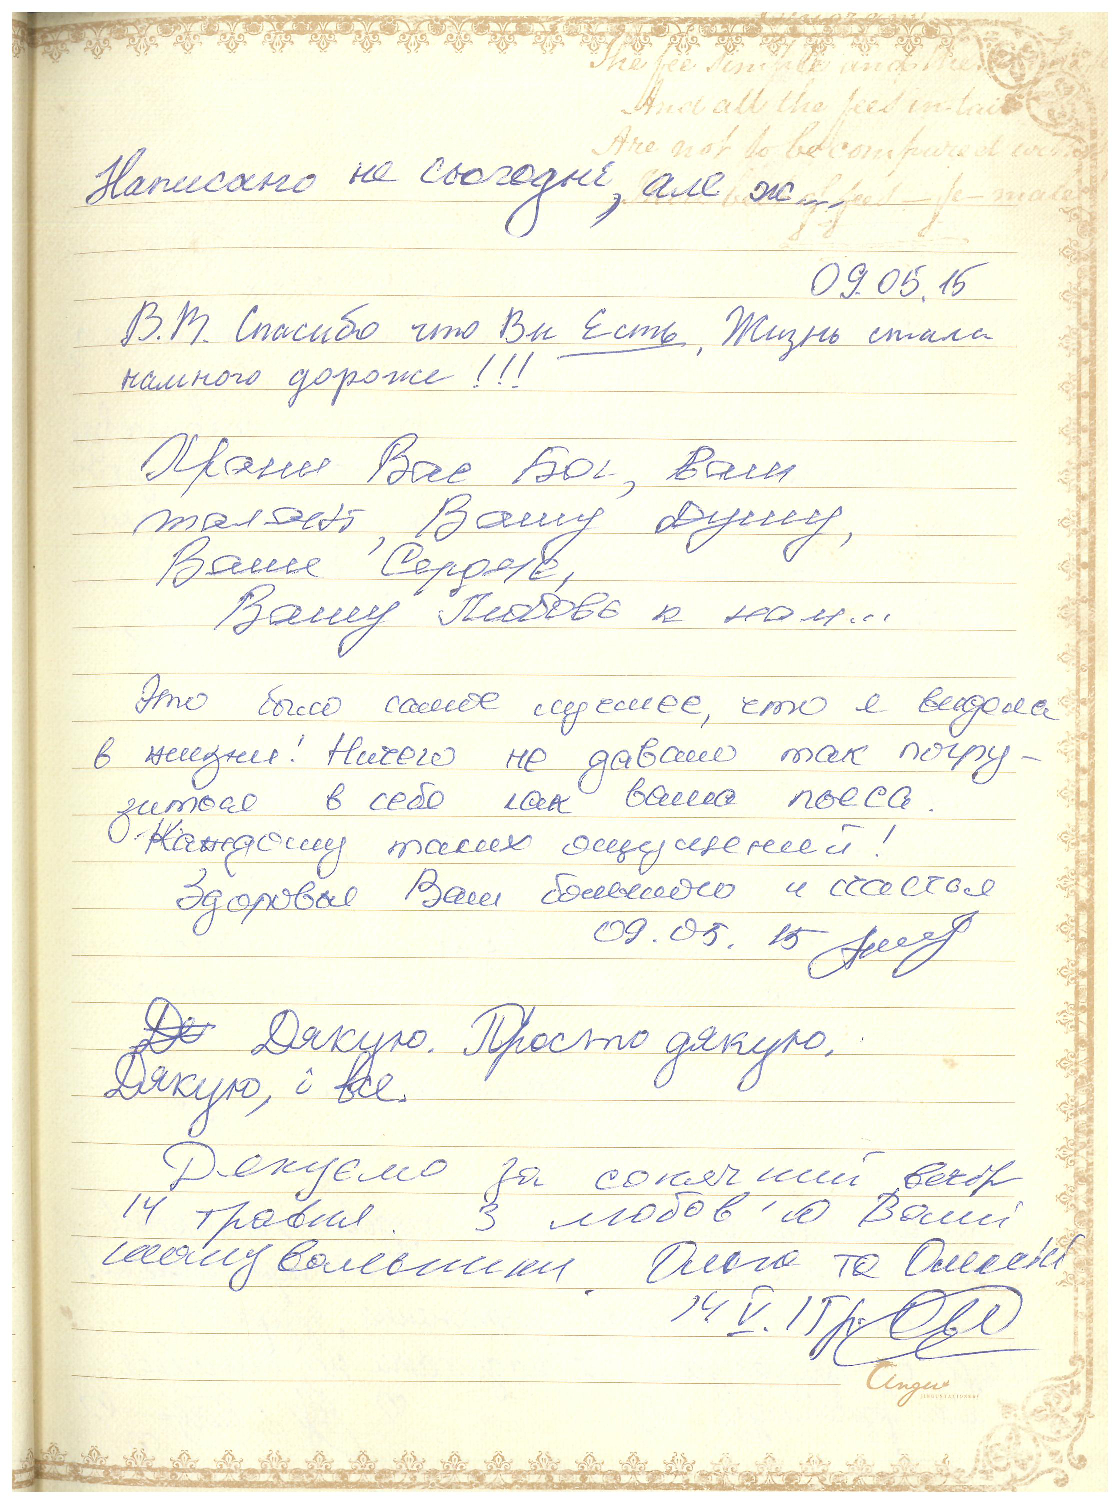 The fee simple and the
And all the fees in tail
Are not to be compared with
Написано не сьогодні, але ж...
09.05.15
В.В. Спасибо что Вы Есть, Жизнь стала
намного дороже!!!
Храни Вас Бог, Ваш
талант, Вашу Душу,
Ваше Сердце,
Вашу Любовь к нам...
Это было самое лучшее, что я видела
в жизни! Ничего не давало так погру-
зиться в себя как ваша пьеса.
Каждому таких ощущений!
Здоровья Вам большого и счастья
09.05.15
Дякую. Просто дякую.
Дякую, і все.
Дякуємо за сонячний вечір
14 травня. З любов'ю Ваші
шанувальники. Ольга та Олексій
14 V. 15р.